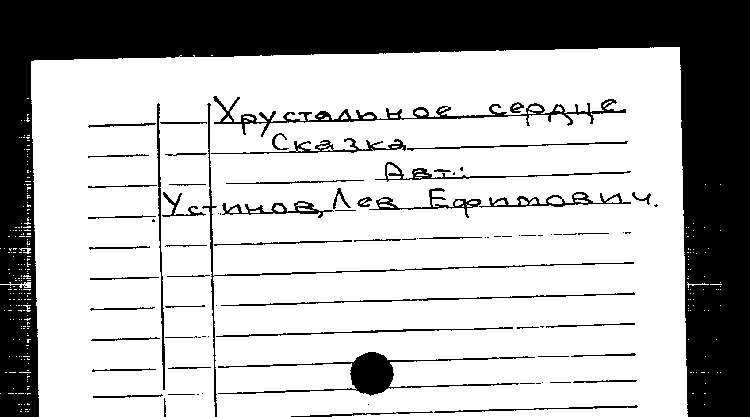 Хрустальное сердце
Сказка
Авт.:
Устинов, Лев Ефимович.